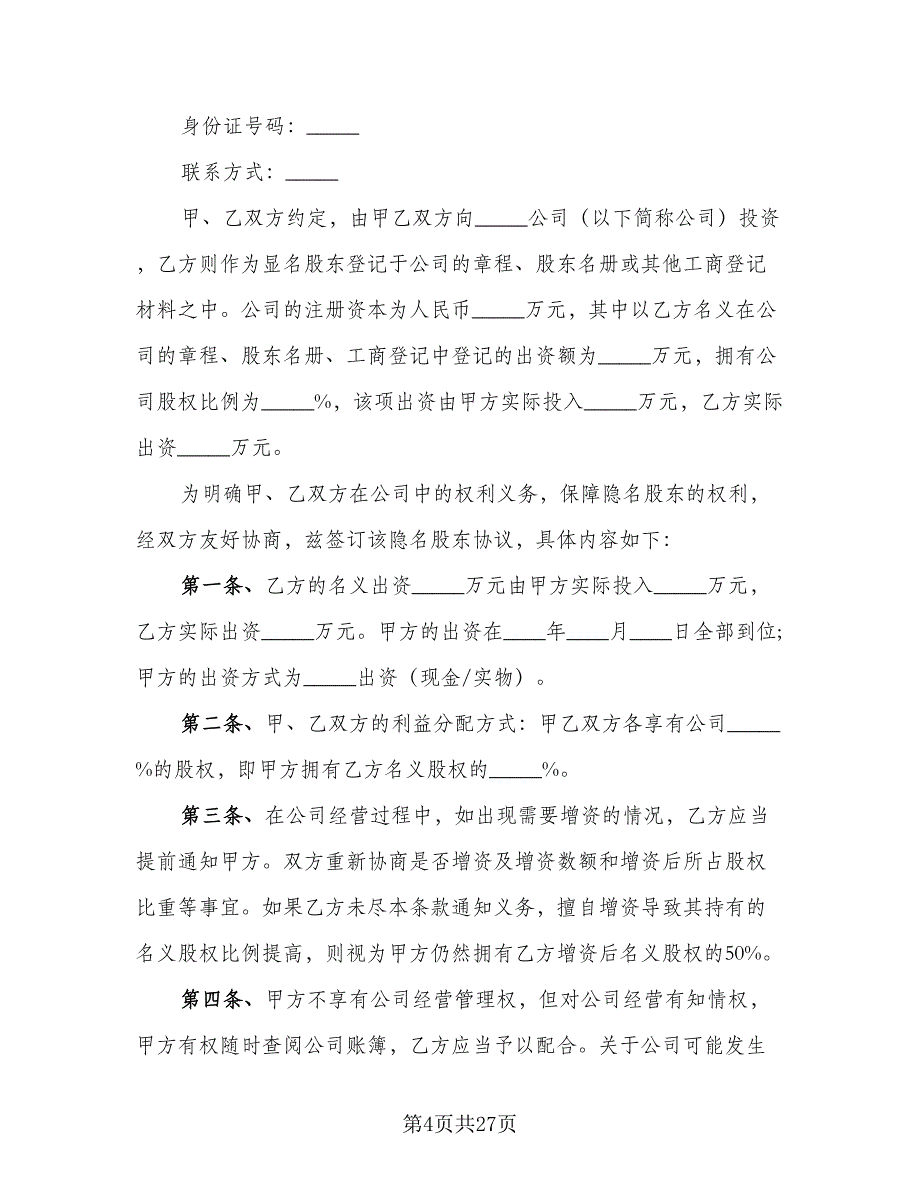 身份证号码：_____
联系方式：_____
甲、乙双方约定，由甲乙双方向_____公司（以下简称公司）投资
，乙方则作为显名股东登记于公司的章程、股东名册或其他工商登记
材料之中。公司的注册资本为人民币_____万元，其中以乙方名义在公
司的章程、股东名册、工商登记中登记的出资额为_____万元，拥有公
司股权比例为_____%，该项出资由甲方实际投入_____万元，乙方实际
出资_____万元。
为明确甲、乙双方在公司中的权利义务，保障隐名股东的权利，
经双方友好协商，兹签订该隐名股东协议，具体内容如下：
第一条、乙方的名义出资_____万元由甲方实际投入_____万元，
乙方实际出资_____万元。甲方的出资在____年____月____日全部到位;
甲方的出资方式为_____出资（现金/实物）。
第二条、甲、乙双方的利益分配方式：甲乙双方各享有公司_____
%的股权，即甲方拥有乙方名义股权的_____%。
第三条、在公司经营过程中，如出现需要增资的情况，乙方应当
提前通知甲方。双方重新协商是否增资及增资数额和增资后所占股权
比重等事宜。如果乙方未尽本条款通知义务，擅自增资导致其持有的
名义股权比例提高，则视为甲方仍然拥有乙方增资后名义股权的50%。
第四条、甲方不享有公司经营管理权，但对公司经营有知情权，
甲方有权随时查阅公司账簿，乙方应当予以配合。关于公司可能发生
第4页共27页